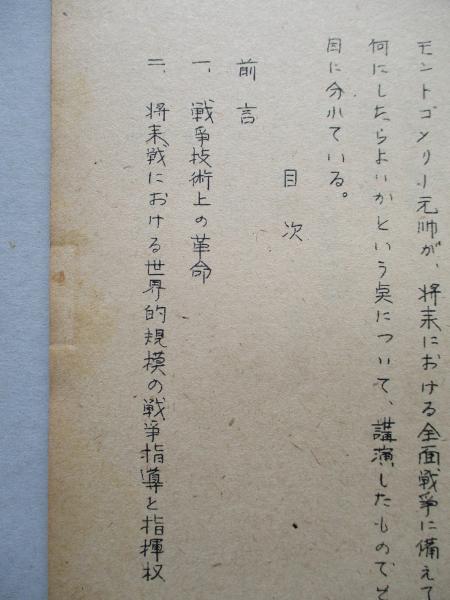 モントゴメリー元帥が、将来における全面戦争に備えて
何にしたらよいかという点について、講演したもので
目に分れている。
目次
前言
一、戦争技術上の革命
二、将来戦における世界的規模の戦争指導と指揮权